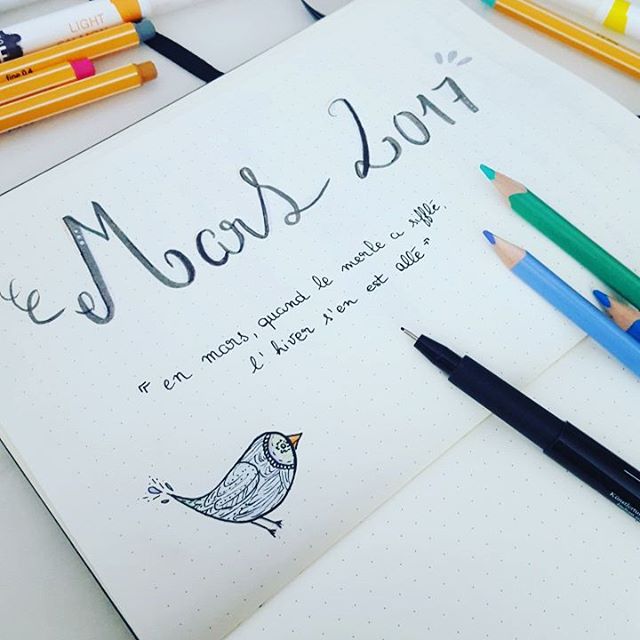 LIGHT
fine 0.4
Mars 2017
" en mars, quand le merle a sifflé,
l'hiver s'en est allé "